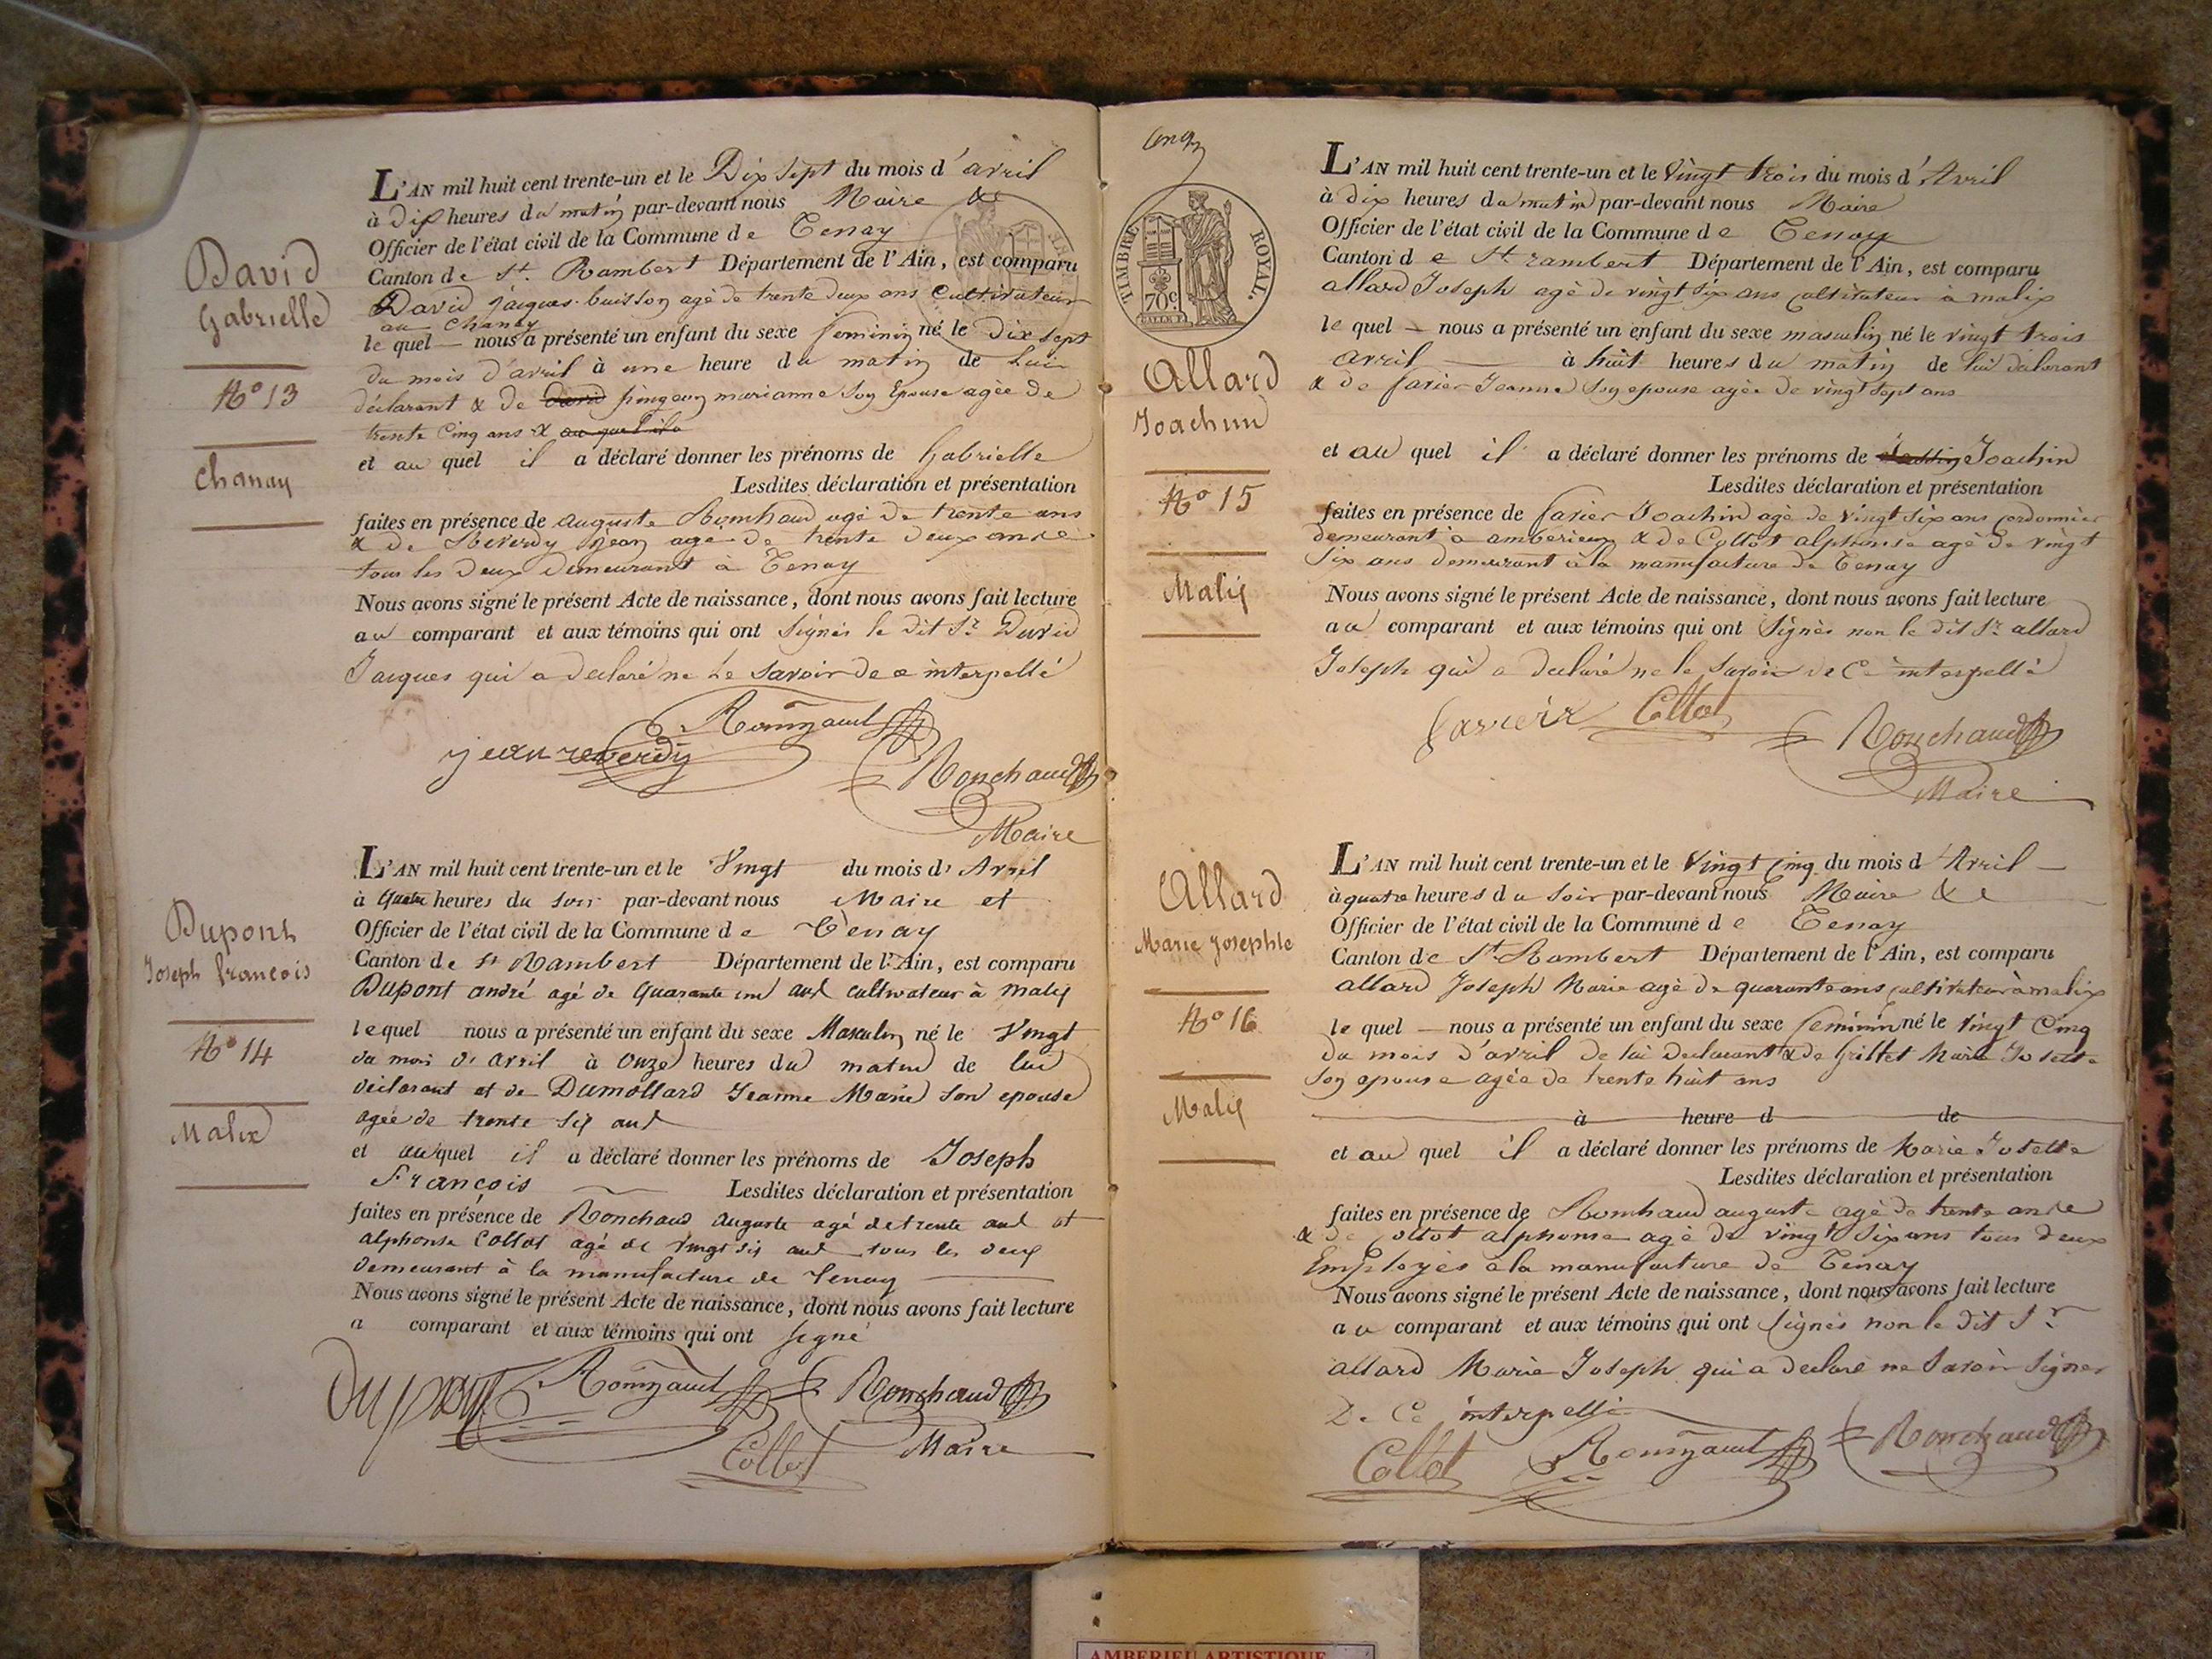 David
Gabrielle
N° 13
Chanay
L'AN mil huit cent trente-un et le Dix Sept du mois d'avril
à Dix heures du matin par-devant nous Maire &
Officier de l'état civil de la Commune de Tenay
Canton de St. Rambert Département de l'Ain, est comparu
David jacques buisson agé de trente deux ans Cultivateur
au Chanay
le quel — nous a présenté un enfant du sexe feminin né le Dix sept
du mois d'avril à une heure du matin de Lui
déclarant & de David pingeon marianne Son Epouse agée de
trente Cinq ans & au quel il a
et au quel il a déclaré donner les prénoms de Gabrielle
Lesdites déclaration et présentation
faites en présence de auguste Ronchaud agé de trente ans
& de Reverdy jean agé de trente deux ans
tous les Deux Demeurant à Tenay
Nous avons signé le présent Acte de naissance, dont nous avons fait lecture
au comparant et aux témoins qui ont Signés le dit Sr David
Jacques qui a declaré ne Le Savoir de ce interpellé
jean reverdy
Ronchaud
Maire
Dupont
Joseph francois
N° 14
Malix
L'AN mil huit cent trente-un et le Vingt du mois d'Avril
à Quatre heures du Soir par-devant nous Maire et
Officier de l'état civil de la Commune de Tènay
Canton de St Rambert Département de l'Ain, est comparu
Dupont andré agé de Quarante un ans cultivateur à malix
lequel nous a présenté un enfant du sexe Masculin né le Vingt
du mois d'avril à Onze heures du matin de lui
déclarant et de Dumollard Jeanne Marie son epouse
agée de trente six ans
et auquel il a déclaré donner les prénoms de Joseph
Francois Lesdites déclaration et présentation
faites en présence de Ronchaud auguste agé de trente ans et
alphonse Collot agé de vingt six ans tous les deux
demeurant à la manufacture de Tenay
Nous avons signé le présent Acte de naissance, dont nous avons fait lecture
a comparant et aux témoins qui ont signé
Dupont
Ronchaud
Collot
Maire
TIMBRE ROYAL.
70c
Allard
Joachim
N° 15
Malix
L'AN mil huit cent trente-un et le Vingt trois du mois d'Avril
à dix heures du matin par-devant nous Maire
Officier de l'état civil de la Commune de Tenay
Canton de St rambert Département de l'Ain, est comparu
allard Joseph agé de vingt Six ans cultivateur à malix
le quel — nous a présenté un enfant du sexe masculin né le vingt trois
avril — à huit heures du matin de lui déclarant
& de favier Jeanne Son epouse agée de vingt Sept ans
et au quel il a déclaré donner les prénoms de Joachin
Lesdites déclaration et présentation
faites en présence de favier Joachin agé de vingt Six ans cordonnier
demeurant à amberieux & de Collot alphonse agé de vingt
Six ans demeurant à la manufacture de Tenay
Nous avons signé le présent Acte de naissance, dont nous avons fait lecture
au comparant et aux témoins qui ont Signés non le dit Sr allard
Joseph qui a declaré ne le Savoir de Ce interpellé
Collot
Ronchaud
Maire
Allard
Marie Josephte
N° 16
Malix
L'AN mil huit cent trente-un et le Vingt Cinq du mois d'Avril —
à quatre heures du Soir par-devant nous Maire &
Officier de l'état civil de la Commune de Tenay
Canton de St Rambert Département de l'Ain, est comparu
allard Joseph Marie agé de quarante ans cultivateur à malix
le quel — nous a présenté un enfant du sexe feminin né le Vingt Cinq
du mois d'avril de lui declarant & de Grillet Marie Josette
Son epouse agée de trente huit ans
à heure d de
et au quel il a déclaré donner les prénoms de Marie Josette
Lesdites déclaration et présentation
faites en présence de Ronchaud auguste agé de trente ans
& de Collot alphonse agé de vingt Six ans tous deux
Employés à la manufacture de Tenay
Nous avons signé le présent Acte de naissance, dont nous avons fait lecture
au comparant et aux témoins qui ont Signés non le dit Sr
allard Marie Joseph qui a declaré ne Savoir Signer
De Ce interpellé
Collot
Ronchaud
AMBERIEU ARTISTIQUE